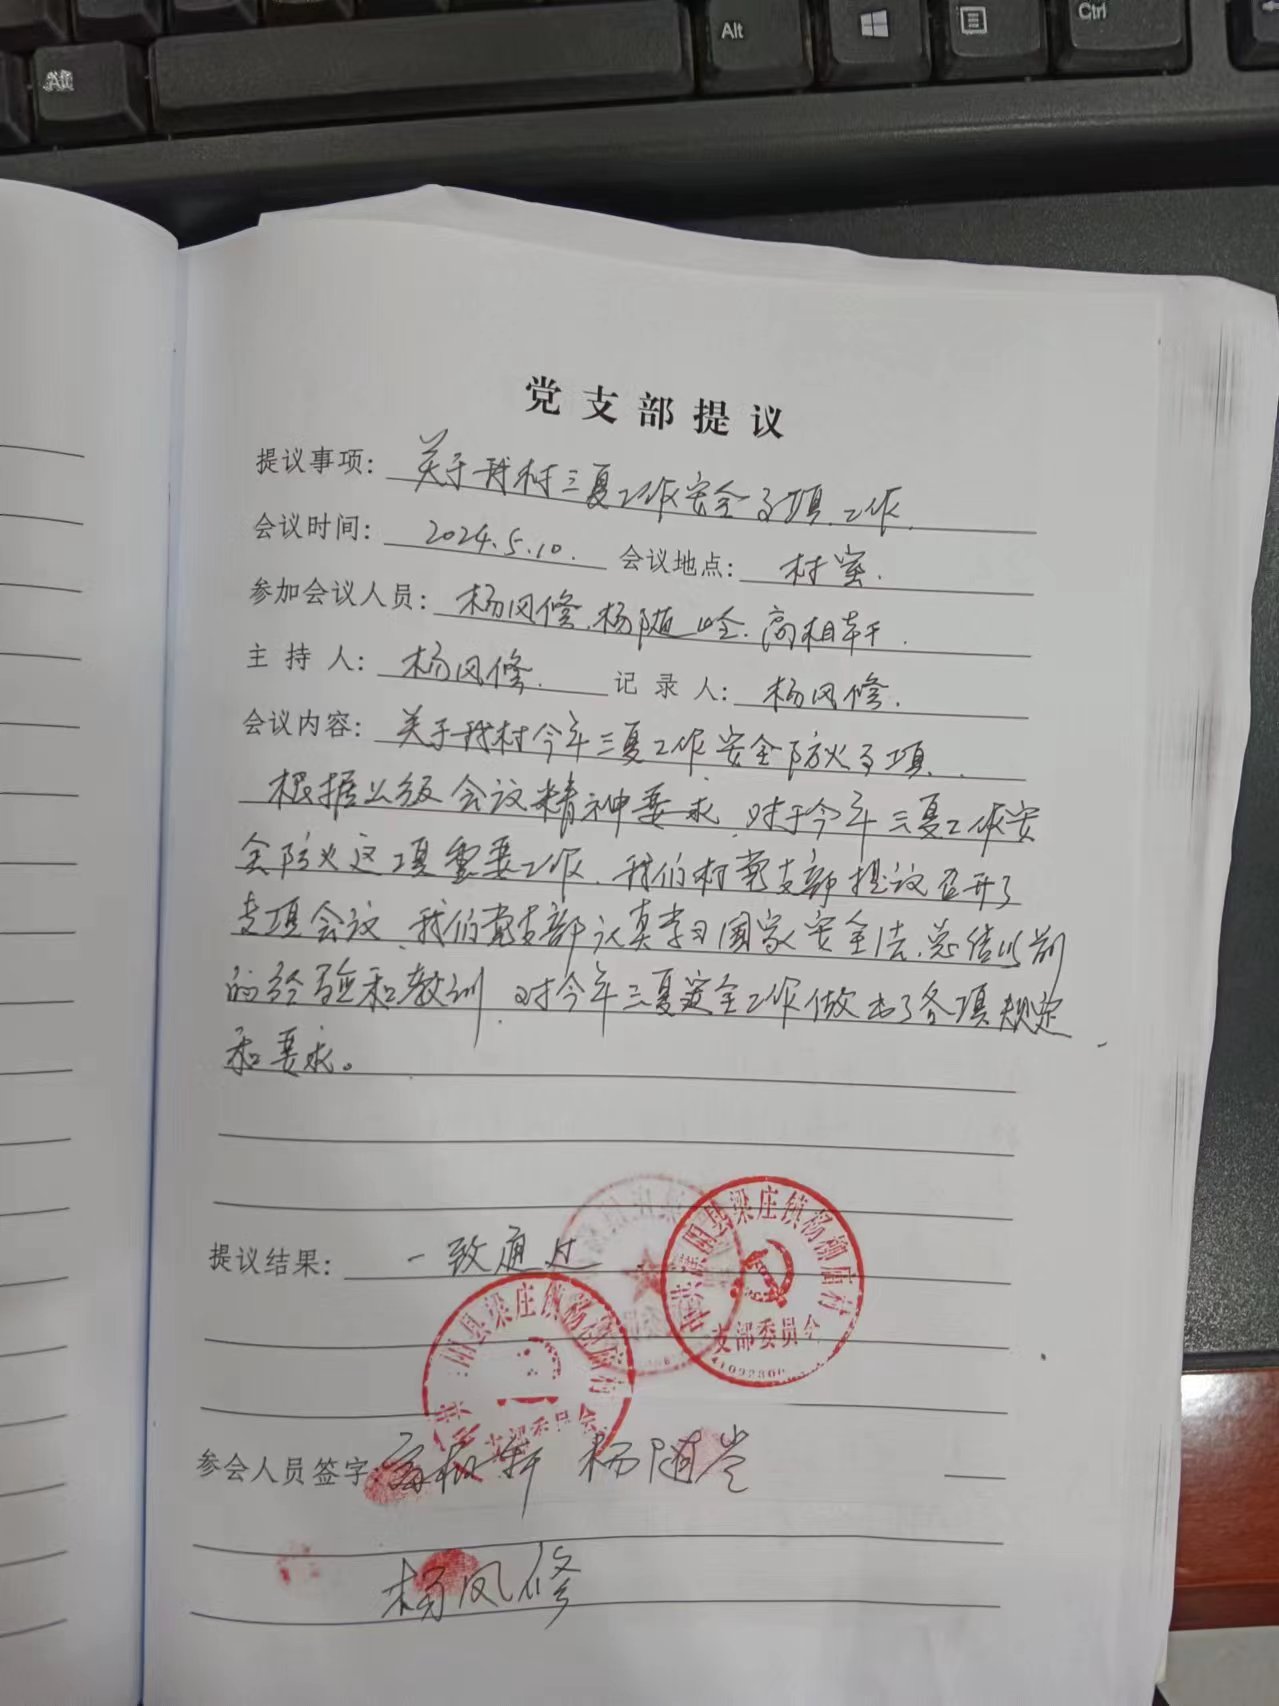 Alt
Ctrl
Alt
党支部提议
提议事项: 关于我村三夏工作安全事项工作.
会议时间: 2024.5.10. 会议地点: 村室.
参加会议人员: 杨凤修.杨随岭.高相轩.
主持人: 杨凤修. 记录人: 杨凤修.
会议内容: 关于我村今年三夏工作安全防火事项.
根据上级会议精神要求.对于今年三夏工作安
全防火这项重要工作.我们村党支部提议召开了
专项会议.我们党支部认真学习国家安全法.总结以前
的经验和教训.对今年三夏安全工作做出了各项规定
和要求。
提议结果: 一致通过
中共濮阳县梁庄镇杨柳庙村
支部委员会
41092800
阳县梁庄镇杨柳庙村
支部委员会
参会人员签字: 高相轩 杨随岭
杨凤修